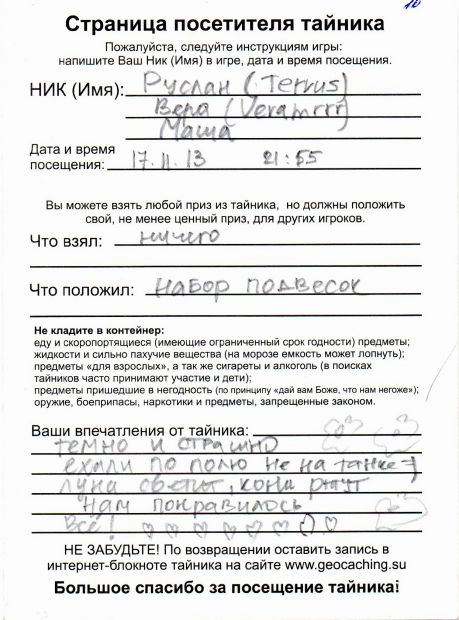 10
Страница посетителя тайника
Пожалуйста, следуйте инструкциям игры:
напишите Ваш Ник (Имя) в игре, дата и время посещения.
НИК (Имя): Руслан (Terrus)
Вера (Veramrrr)
Маша
Дата и время
посещения: 17.11.13 21:55
Вы можете взять любой приз из тайника, но должны положить
свой, не менее ценный приз, для других игроков.
Что взял: ничего
Что положил: набор подвесок
Не кладите в контейнер:
еду и скоропортящиеся (имеющие ограниченный срок годности) предметы;
жидкости и сильно пахучие вещества (на морозе емкость может лопнуть);
предметы «для взрослых», а так же сигареты и алкоголь (в поисках
тайников часто принимают участие и дети);
предметы пришедшие в негодность (по принципу «дай вам Боже, что нам негоже»);
оружие, боеприпасы, наркотики и предметы, запрещенные законом.
Ваши впечатления от тайника:
темно и страшно
ехали по полю не на танке =)
луна светит, кони ржут
Нам понравилось
Все!
НЕ ЗАБУДЬТЕ! По возвращении оставить запись в
интернет-блокноте тайника на сайте www.geocaching.su
Большое спасибо за посещение тайника!